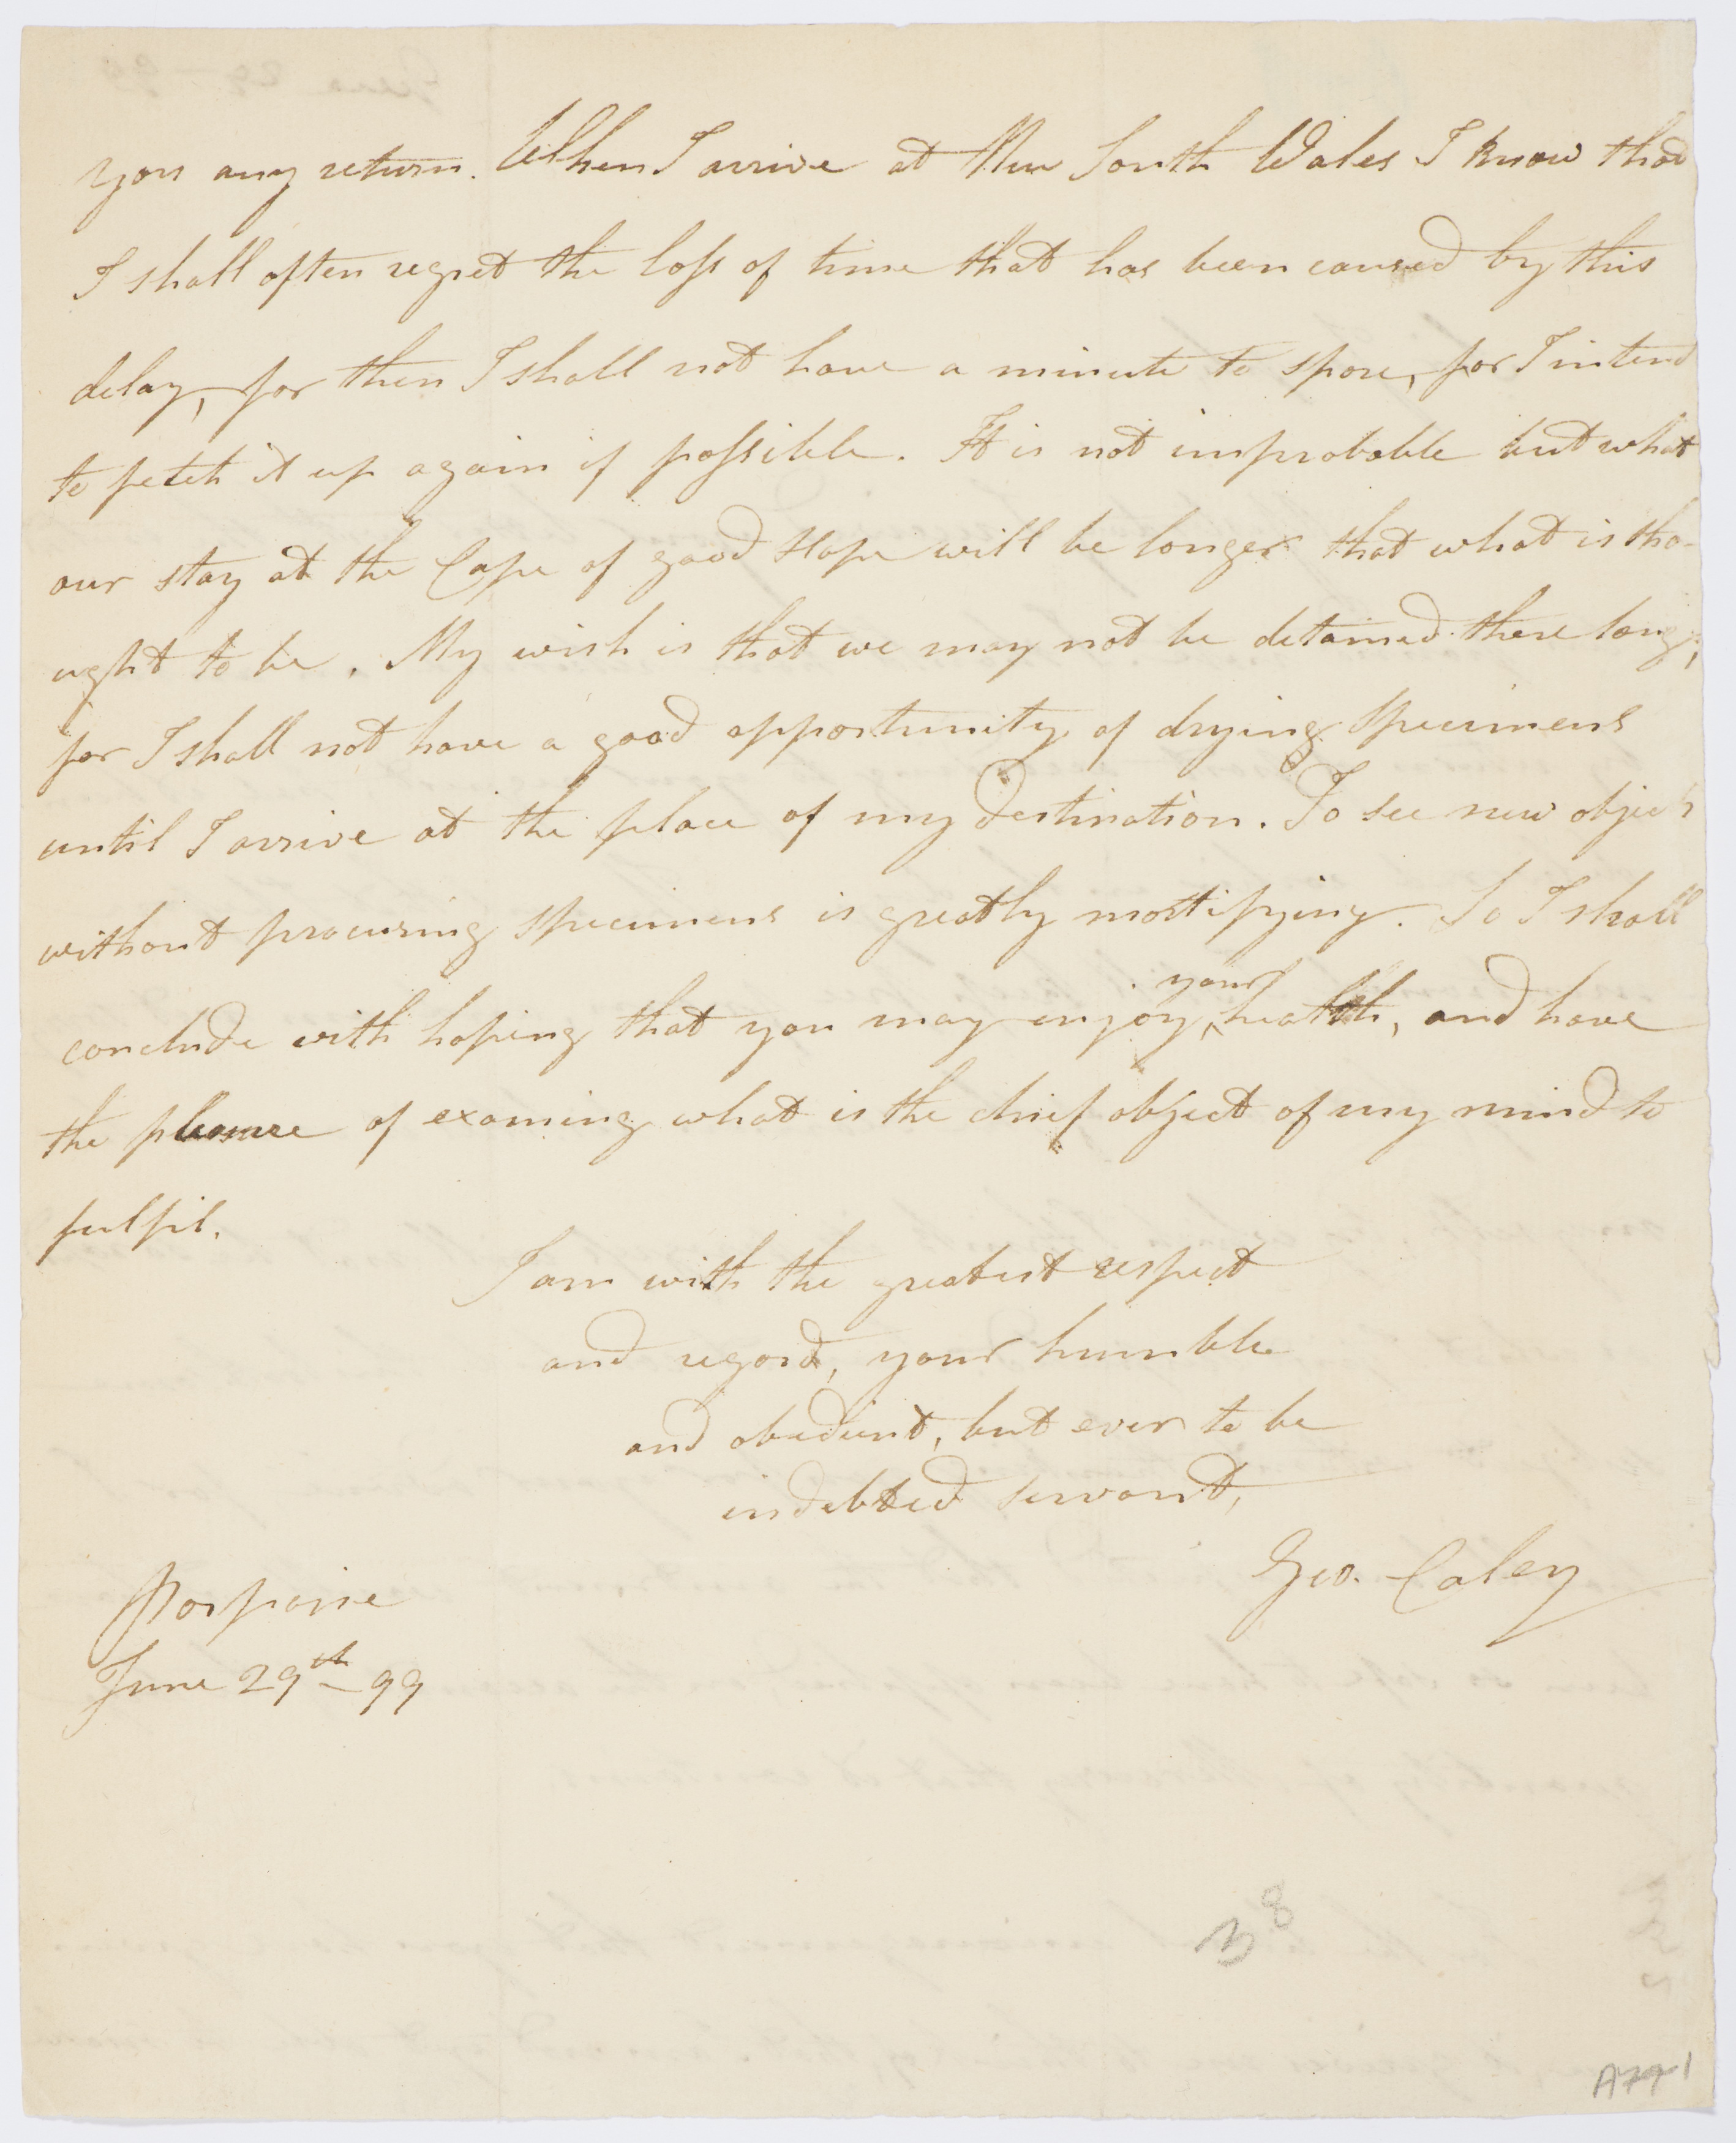 you any return. When I arrive at New South Wales I know that
I shall often regret the loss of time that has been caused by this
delay, for then I shall not have a minute to spare, for I intend
to fetch it up again if possible. It is not improbable but what
our stay at the Cape of good Hope will be longer that what is tho-
ught to be. My wish is that we may not be detained there long,
for I shall not have a good opportunity of drying Specimens
until I arrive at the place of my destination. To see new objects
without procuring Specimens is greatly mortifying. So I shall
conclude with hoping that you may enjoy your health, and have
the pleasure of examing what is the chief object of my mind to
fulfil.
I am with the greatest respect
and regard, your humble
and obedient, but ever to be
indebted servant,
Geo. Caley
Porpoise
June 29th - 99
38
A79-1